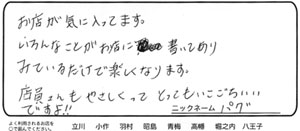 お店が気に入ってます。
いろんなことがお店に書いてあり
みているだけで楽しくなります。
店員さんもやさしくってとってもいごこちいい
ですよ!!
ニックネーム パグ
よく利用されるお店を
○で囲んでください。
立川 小作 羽村 昭島 青梅 高幡 堀之内 八王子